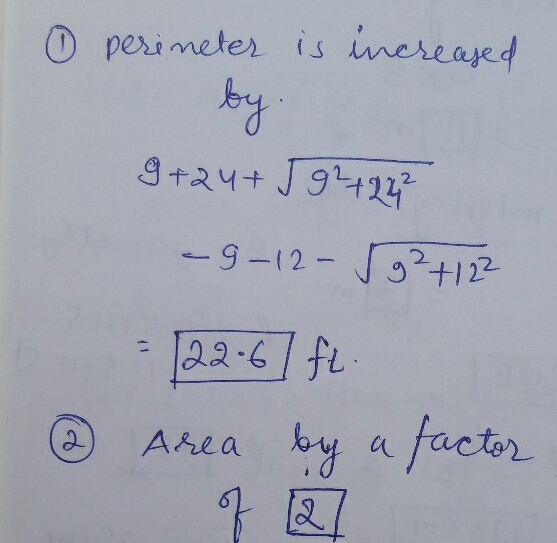 ① perimeter is increased
by.
9+24+√9²+24²
-9-12-√9²+12²
= 22.6 ft.
② Area by a factor
of 2